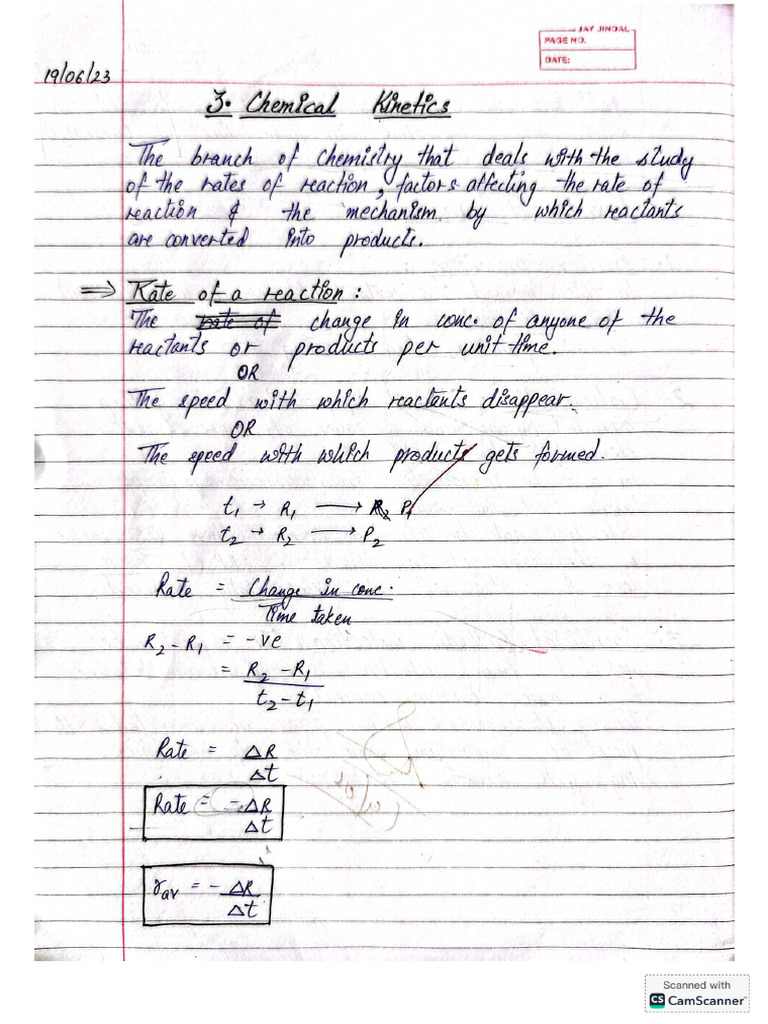 JAY JINDAL
PAGE NO.
DATE:
19/06/23
3. Chemical Kinetics
The branch of chemistry that deals with the study
of the rates of reaction, factors affecting the rate of
reaction & the mechanism by which reactants
are converted into products.
⇒ Rate of a reaction :
The rate of change in conc. of anyone of the
reactants or products per unit time.
OR
The speed with which reactants disappear.
OR
The speed with which products gets formed.
t₁ → R₁ ⟶ R₂ P₁
t₂ → R₂ ⟶ P₂
Rate = Change in conc.
Time taken
R₂ - R₁ = -ve
= R₂ - R₁
t₂ - t₁
Rate = ΔR
Δt
Rate = -ΔR
Δt
r_av = - ΔR
Δt
Scanned with
CS CamScanner